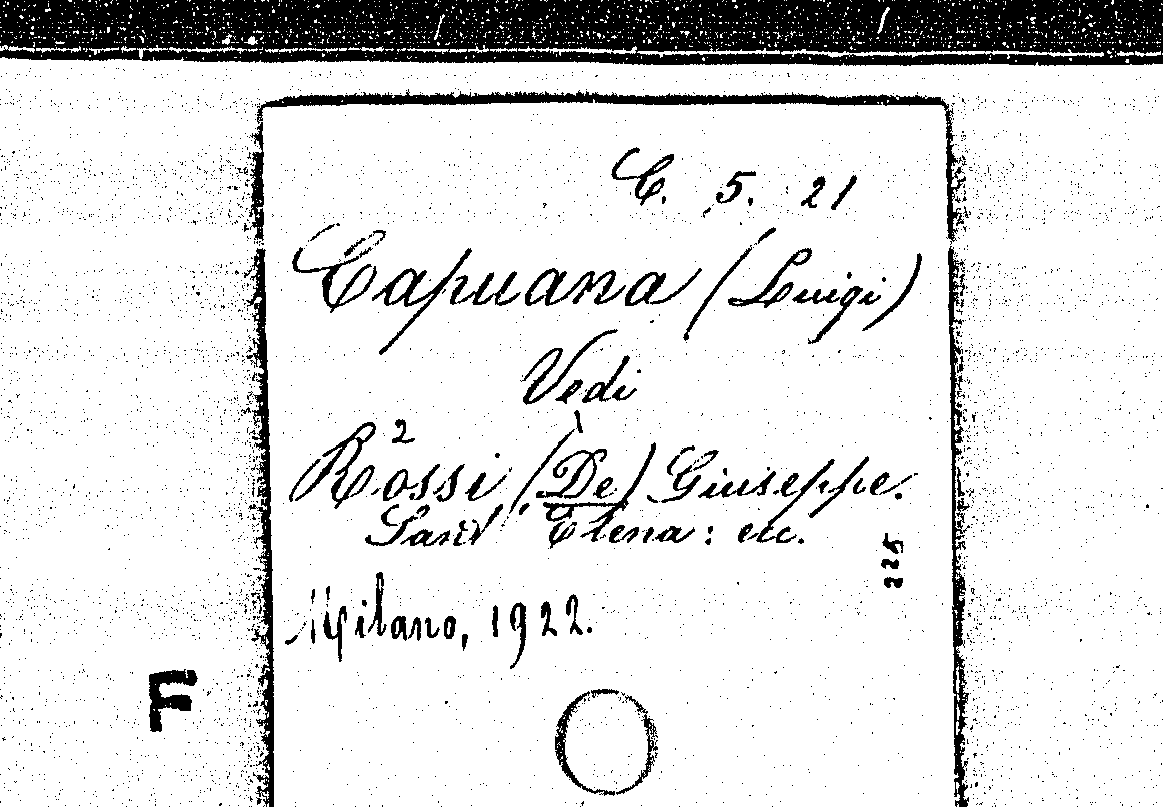 C. 5. 21
Capuana (Luigi)
Vedi
2
Rossi (De) Giuseppe.
Sant' Elena: etc.
225
Milano, 1922.
F